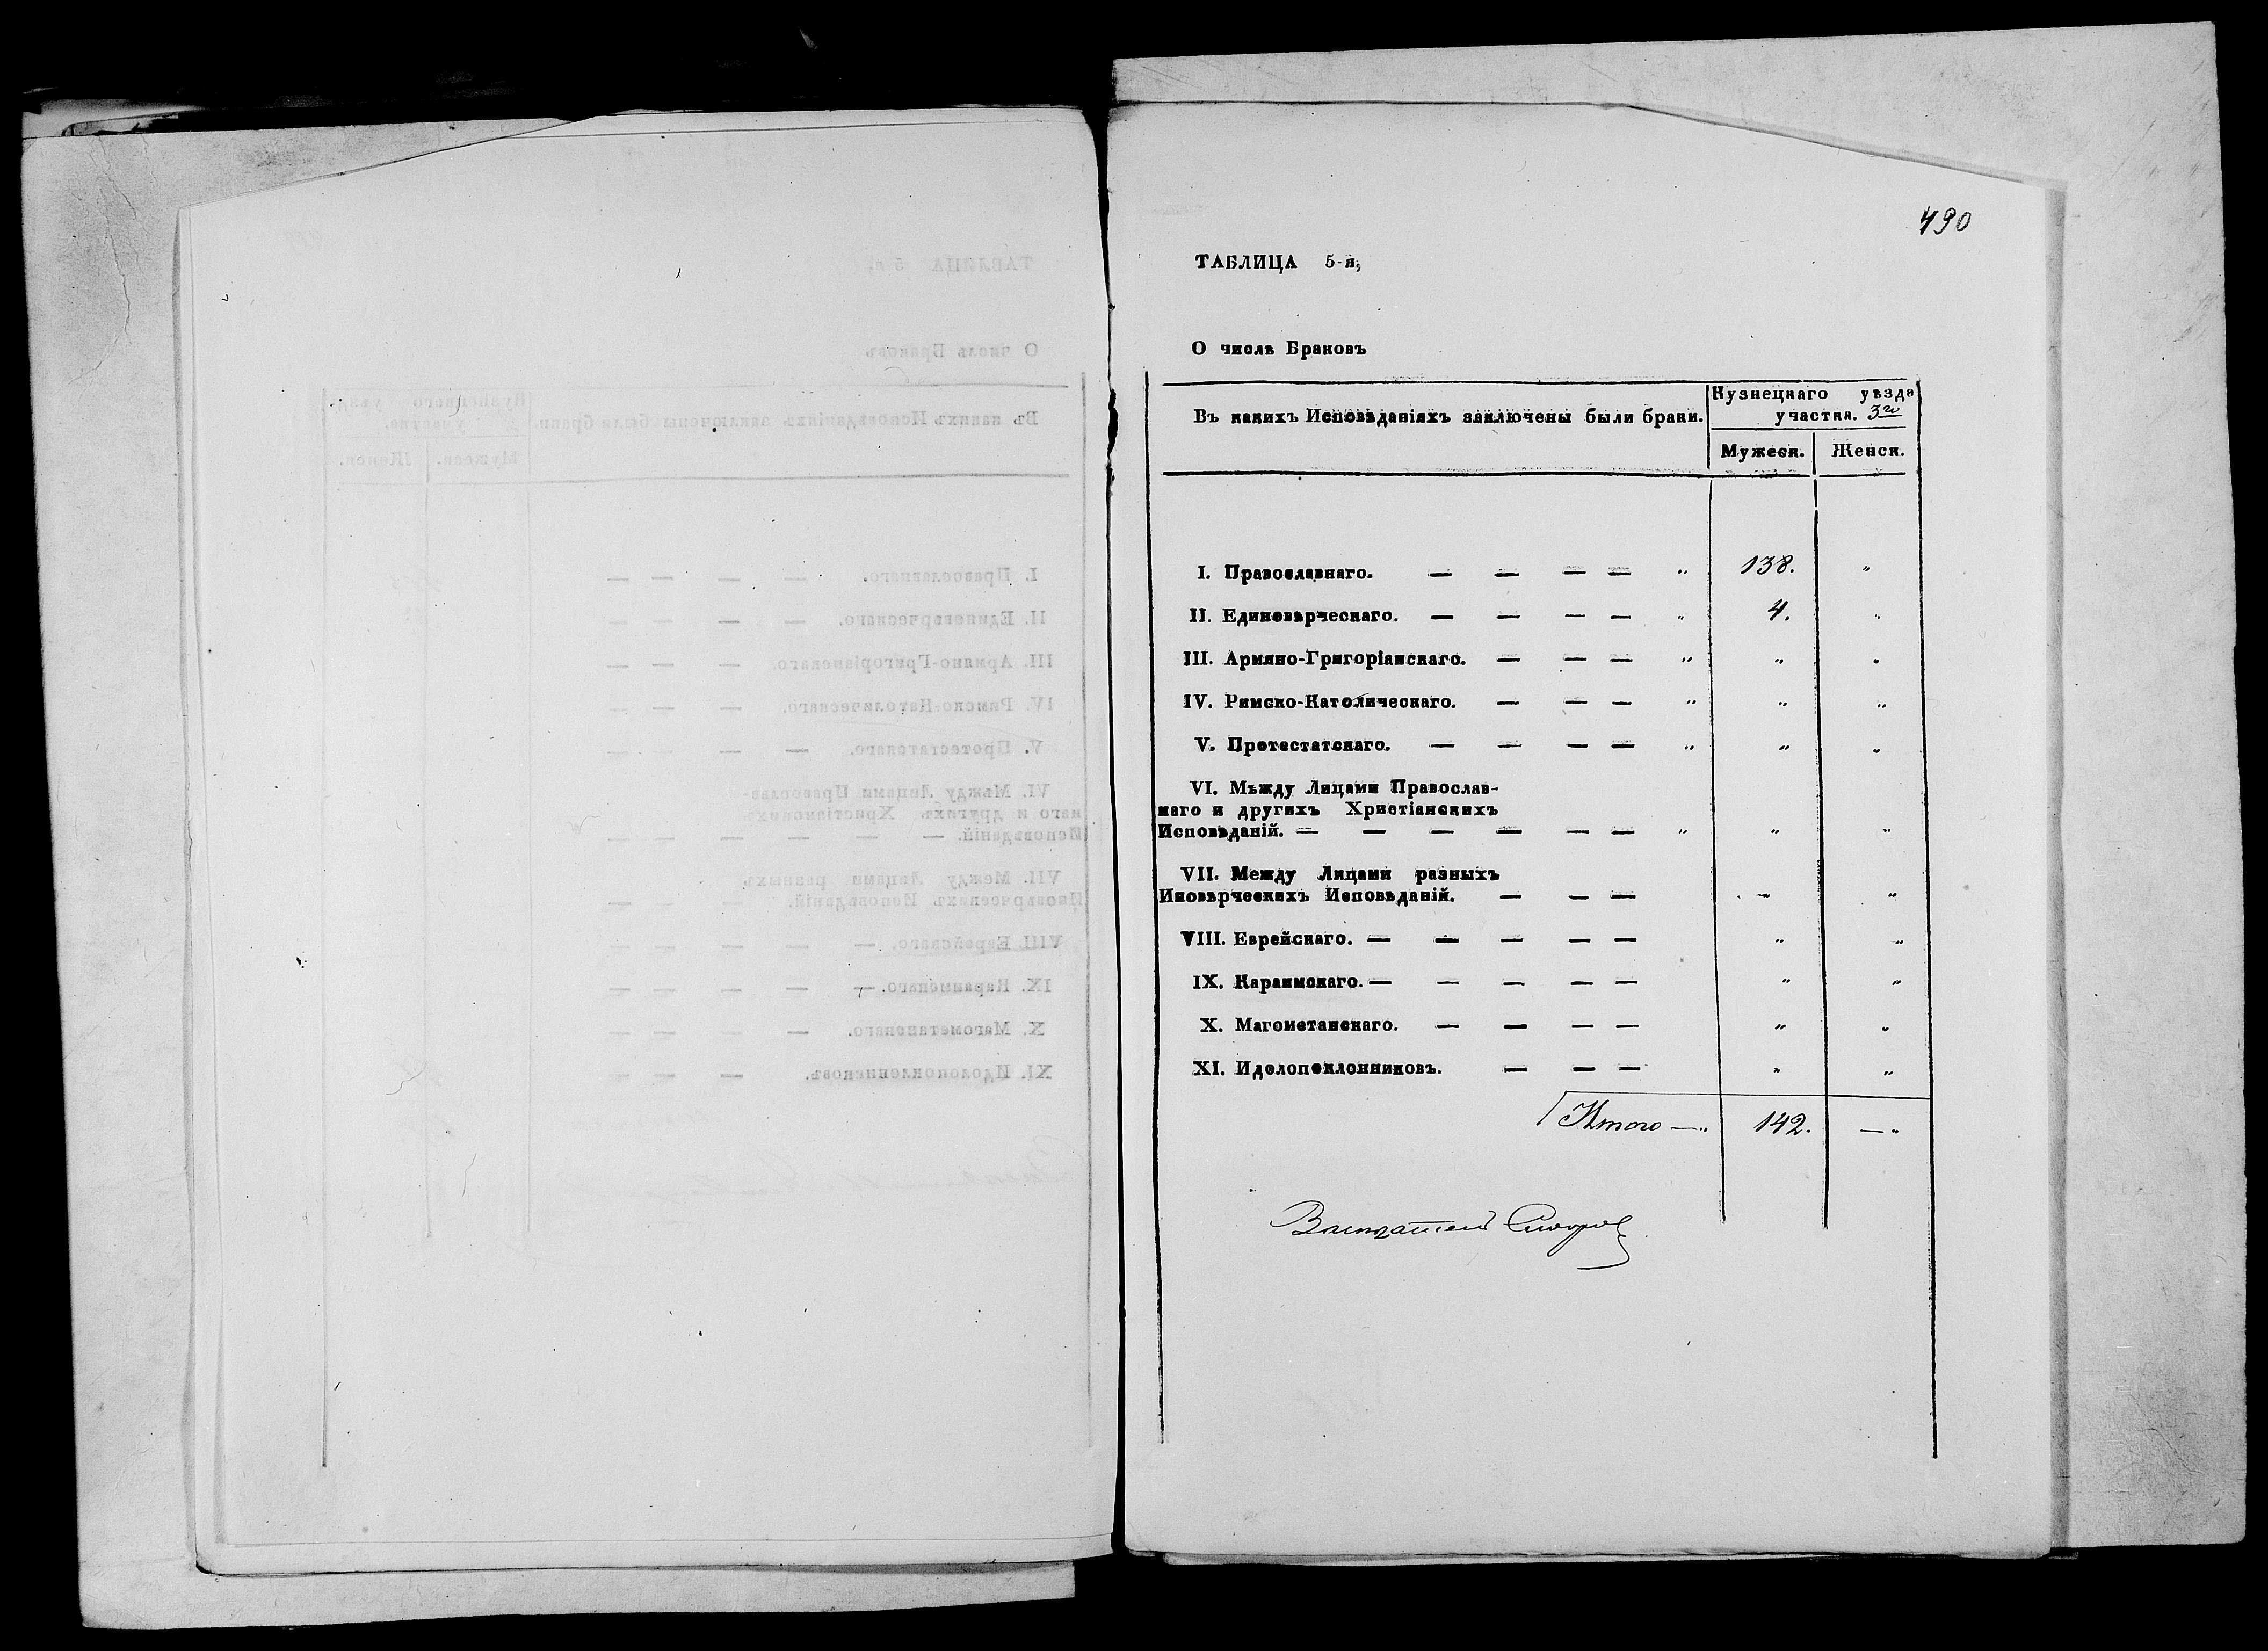 490
ТАБЛИЦА 5-я,
О числѣ Браковъ
Въ какихъ Исповѣданіяхъ заключены были браки.
Кузнецкаго уѣзда
участка. 3го
Мужеск. Женск.
I. Православнаго. — — — — „ 138. „
II. Единовѣрческаго. — — — — „ 4. „
III. Армяно-Григоріанскаго. — — — „ „ „
IV. Римско-Католическаго. — — — „ „ „
V. Протестатскаго. — — — — „ „ „
VI. Мѣжду Лицами Православ-
наго и другихъ Христіанскихъ
Исповѣданій. — — — — — — „ „ „
VII. Между Лицами разныхъ
Иновѣрческихъ Исповѣданій. — — — „ „
VIII. Еврейскаго. — — — — — „ „
IX. Караимскаго. — — — — — „ „
X. Магометанскаго. — — — — „ „
XI. Идолопоклонниковъ. — — — „ „
Итого — „ 142. — „